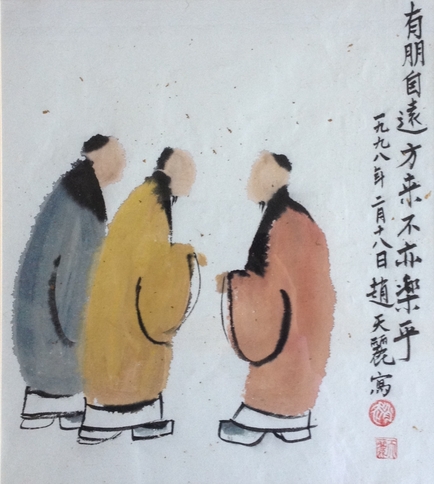 有朋自遠方来不亦楽乎
一九九八年二月十八日趙天麗寫